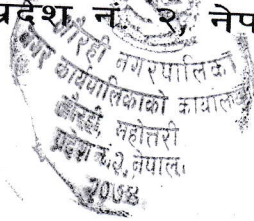 प्रदेश नं. २, नेप
गौरही नगरपालिका
नगर कार्यपालिकाको कार्यालय
महोत्तरी
प्रदेश नं.२, नेपाल।
२०७४